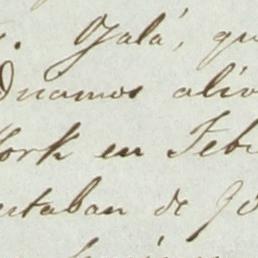 . Ojalá, qu
Dnamos aliv
York en Feb
estaban de Jo